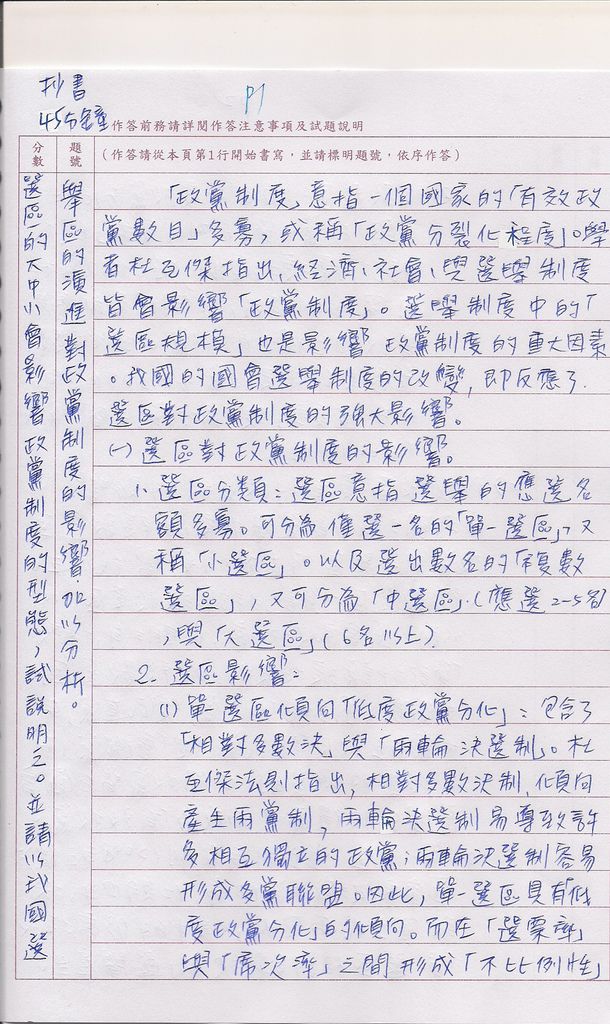 抄書
P1
45分鐘
作答前務請詳閱作答注意事項及試題說明
分數
題號
(作答請從本頁第1行開始書寫,並請標明題號,依序作答)
選區的大中小會影響政黨制度的型態,試說明之。並請以我國選
舉區的演進對政黨制度的影響加以分析。
「政黨制度」意指一個國家的「有效政
黨數目」多寡,或稱「政黨分裂化程度」。學
者杜瓦傑指出,經濟、社會、與選舉制度
皆會影響「政黨制度」。選舉制度中的「
選區規模」也是影響政黨制度的重大因素
。我國的國會選舉制度的改變,即反應了
選區對政黨制度的強大影響。
(一)選區對政黨制度的影響。
1.選區分類:選區意指選舉的應選名
額多寡。可分為僅選一名的「單一選區」,又
稱「小選區」。以及選出數名的「複數
選區」,又可分為「中選區」(應選2-5名)
,與「大選區」(6名以上)。
2.選區影響:
(1)單一選區傾向「低度政黨分化」:包含了
「相對多數決」與「兩輪決選制」。杜
瓦傑法則指出,相對多數決制,傾向
產生兩黨制,兩輪決選制易導致許
多相互獨立的政黨;兩輪決選制容易
形成多黨聯盟。因此,單一選區具有「低
度政黨分化」的傾向。而在「選票率」
與「席次率」之間形成「不比例性」